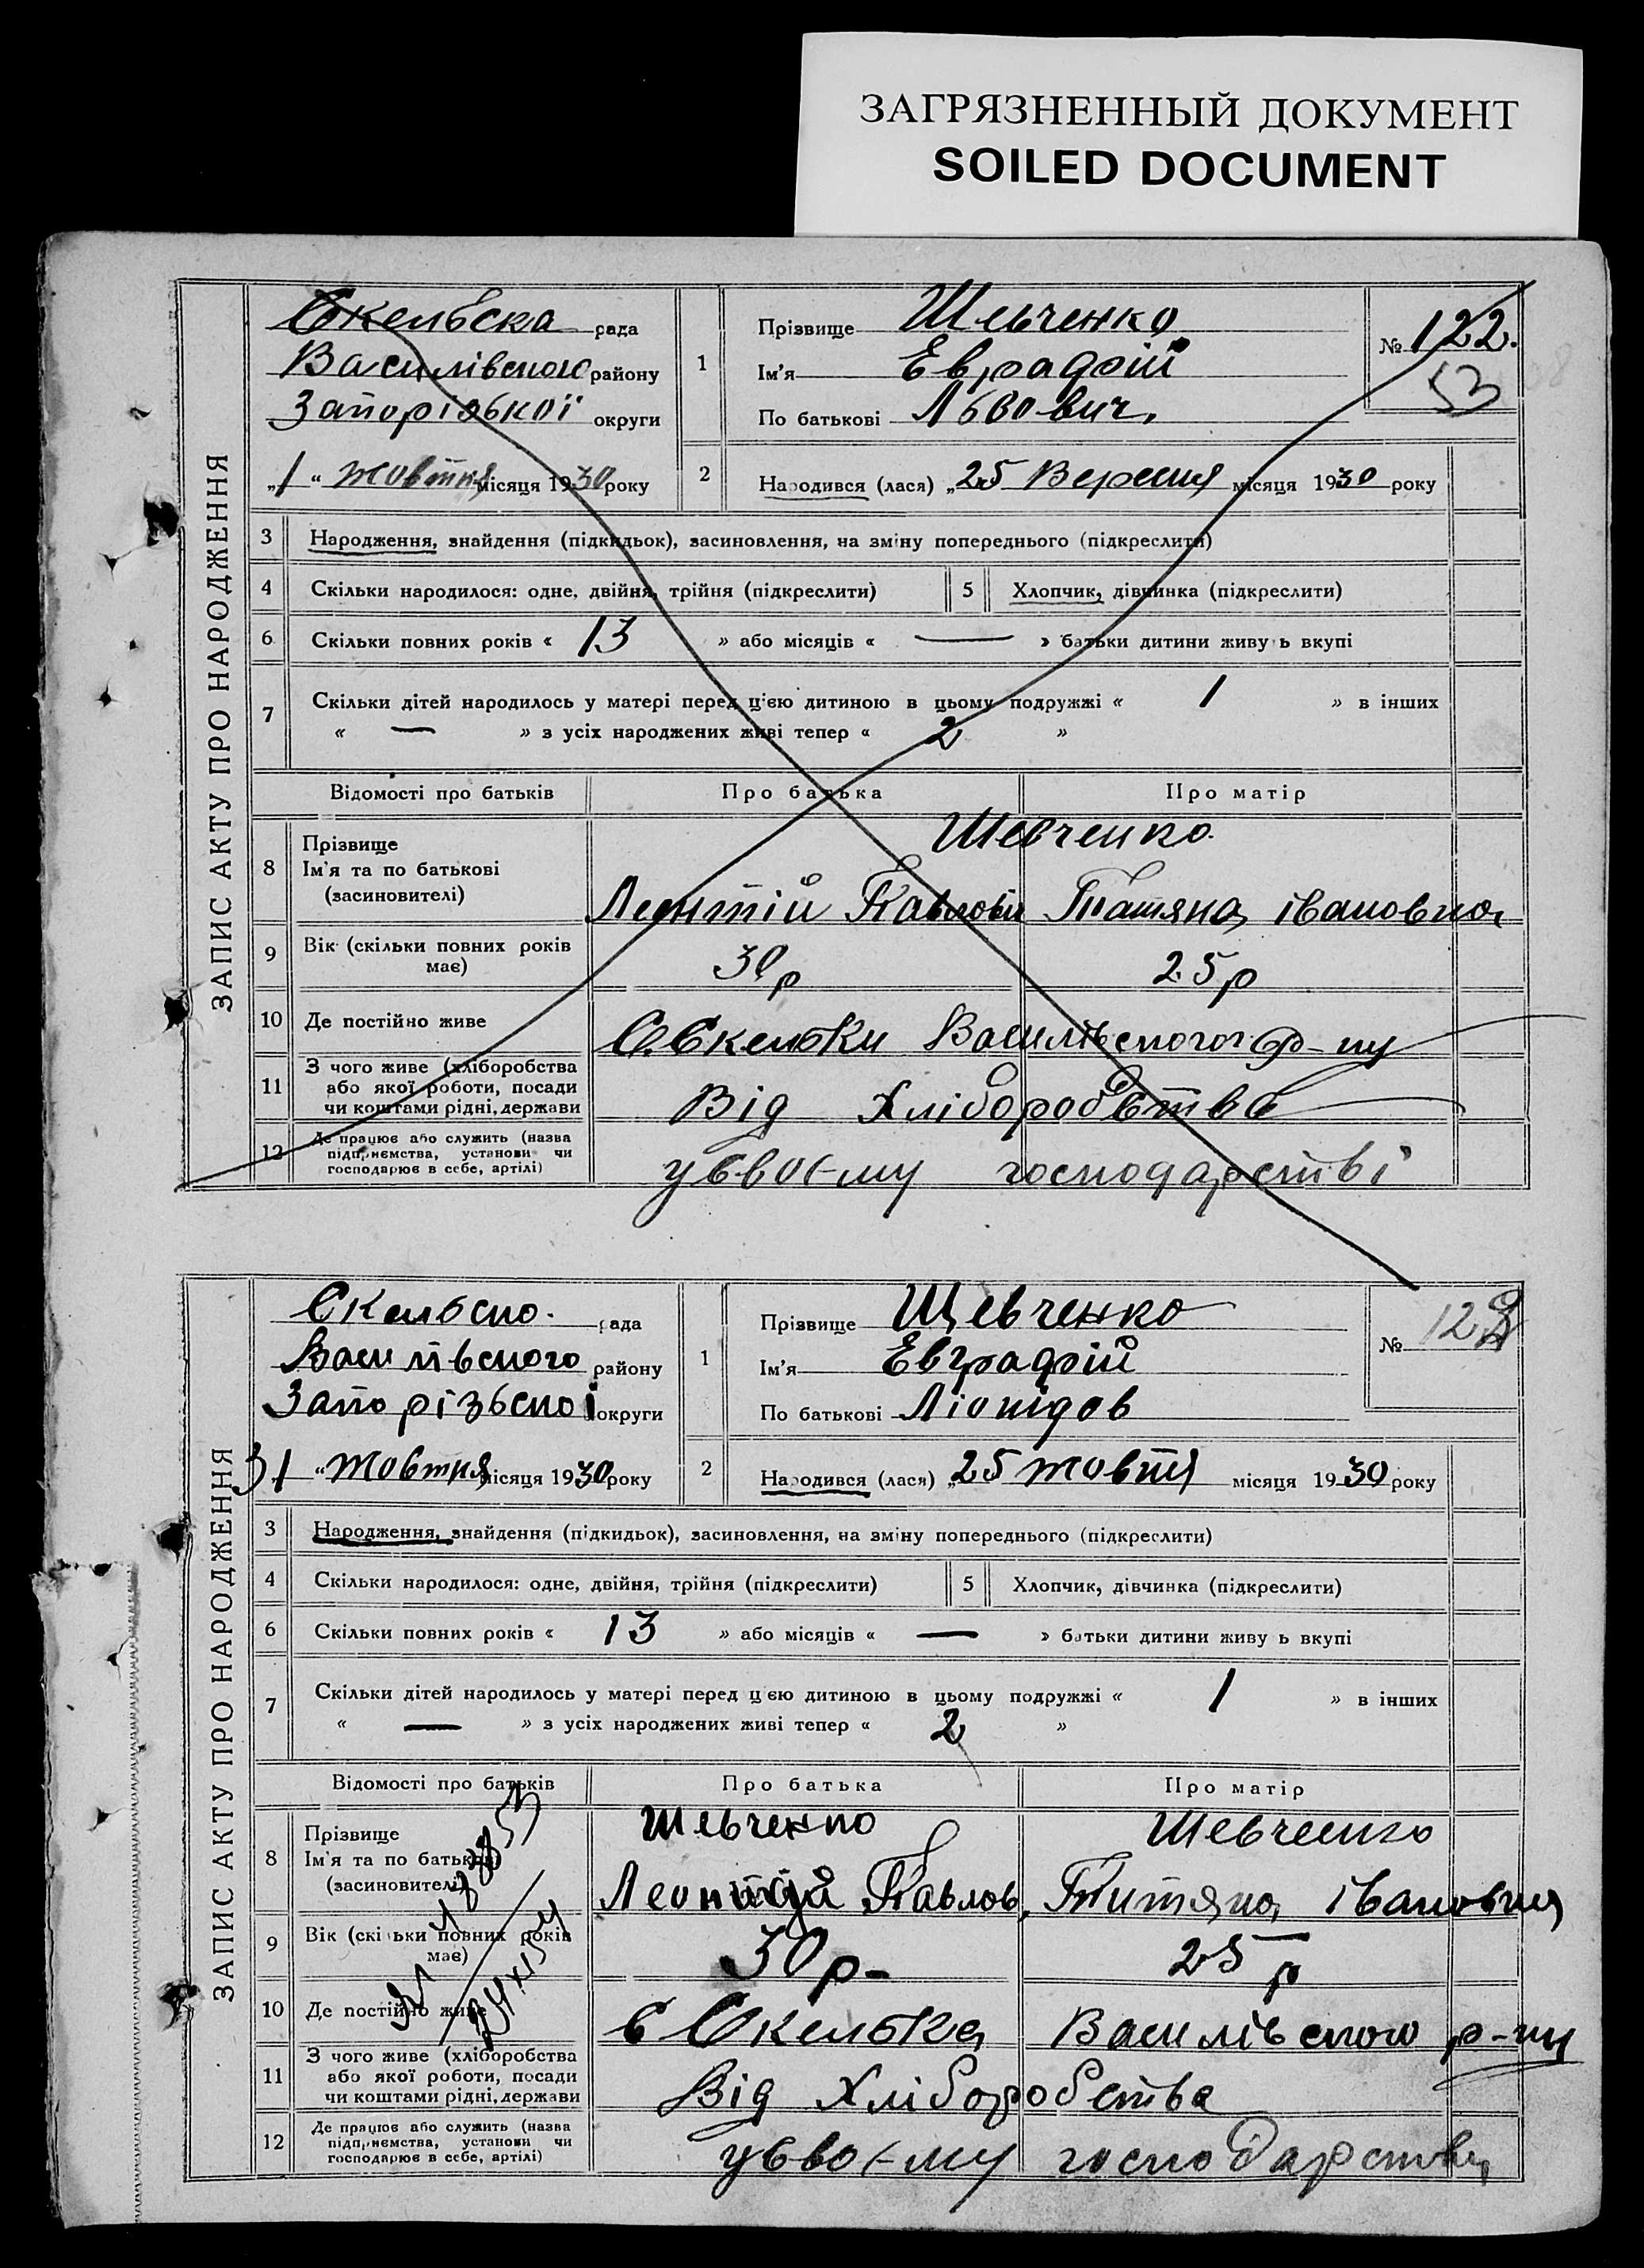 ЗАГРЯЗНЕННЫЙ ДОКУМЕНТ
SOILED DOCUMENT
ЗАПИС АКТУ ПРО НАРОДЖЕННЯ
Скельбска рада
Василівского району
Запорізькой округи
„1“ жовтня місяця 1930 року
1
Прізвище Шевченко
Ім'я Евграфій
По батькові Львович
№ 122.
53
2
Народився (лася) „25 Вересня місяця 1930 року
3 Народження, знайдення (підкидьок), засиновлення, на зміну попереднього (підкреслити)
4 Скільки народилося: одне, двійня, трійня (підкреслити) 5 Хлопчик, дівчинка (підкреслити)
6 Скільки повних років « 13 » або місяців « — » батьки дитини живуть вкупі
7 Скільки дітей народилось у матері перед цією дитиною в цьому подружжі « 1 » в інших
« — » з усіх народжених живі тепер « 2 »
Відомості про батьків Про батька Про матір
8 Прізвище
Ім'я та по батькові
(засиновителі)
Шевченко
Леонтій Павлови Татяна івановна
9 Вік (скільки повних років має) 30 р 25 р
10 Де постійно живе С. Скельки Василівського р-ну
11 З чого живе (хліборобства
або якої роботи, посади
чи коштами рідні, держави
Від Хліборобства
12 Де працює або служить (назва
підприємства, установи чи
господарює в себе, артілі)
у сввоєму господарстві
ЗАПИС АКТУ ПРО НАРОДЖЕННЯ
Скельско. рада
Василівского району
Запорізьскої округи
31 “ Жовтня місяця 1930 року
1
Прізвище Шевченко
Ім'я Евграфій
По батькові Ліонідов
№
2
Народився (лася) „25 жовтня місяця 1930 року
3 Народження, знайдення (підкидьок), засиновлення, на зміну попереднього (підкреслити)
4 Скільки народилося: одне, двійня, трійня (підкреслити) 5 Хлопчик, дівчинка (підкреслити)
6 Скільки повних років « 13 » або місяців « — » батьки дитини живуть вкупі
7 Скільки дітей народилось у матері перед цією дитиною в цьому подружжі « 1 » в інших
« — » з усіх народжених живі тепер « 2 »
Відомості про батьків Про батька Про матір
8 Прізвище
Ім'я та по батькові
(засиновителі)
Шевченко Шевченко
Павлов, Татяна івановня
9 Вік (скільки повних років має) 30 р - 25 р
10 Де постійно живе с Скелька Василівского р-ну
11 З чого живе (хліборобства
або якої роботи, посади
чи коштами рідні, держави
Від Хліборобства
12 Де працює або служить (назва
підприємства, установи чи
господарює в себе, артілі)
у сввоєму господарстві